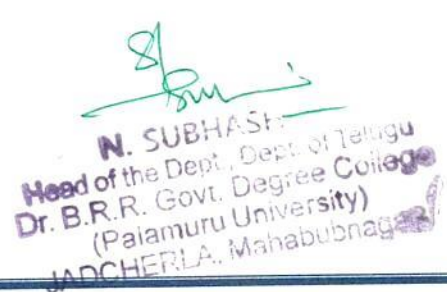 N. SUBHASH
Head of the Dept., Dept. of Telugu
Dr. B.R.R. Govt. Degree College
(Palamuru University)
JADCHERLA, Mahabubnagar